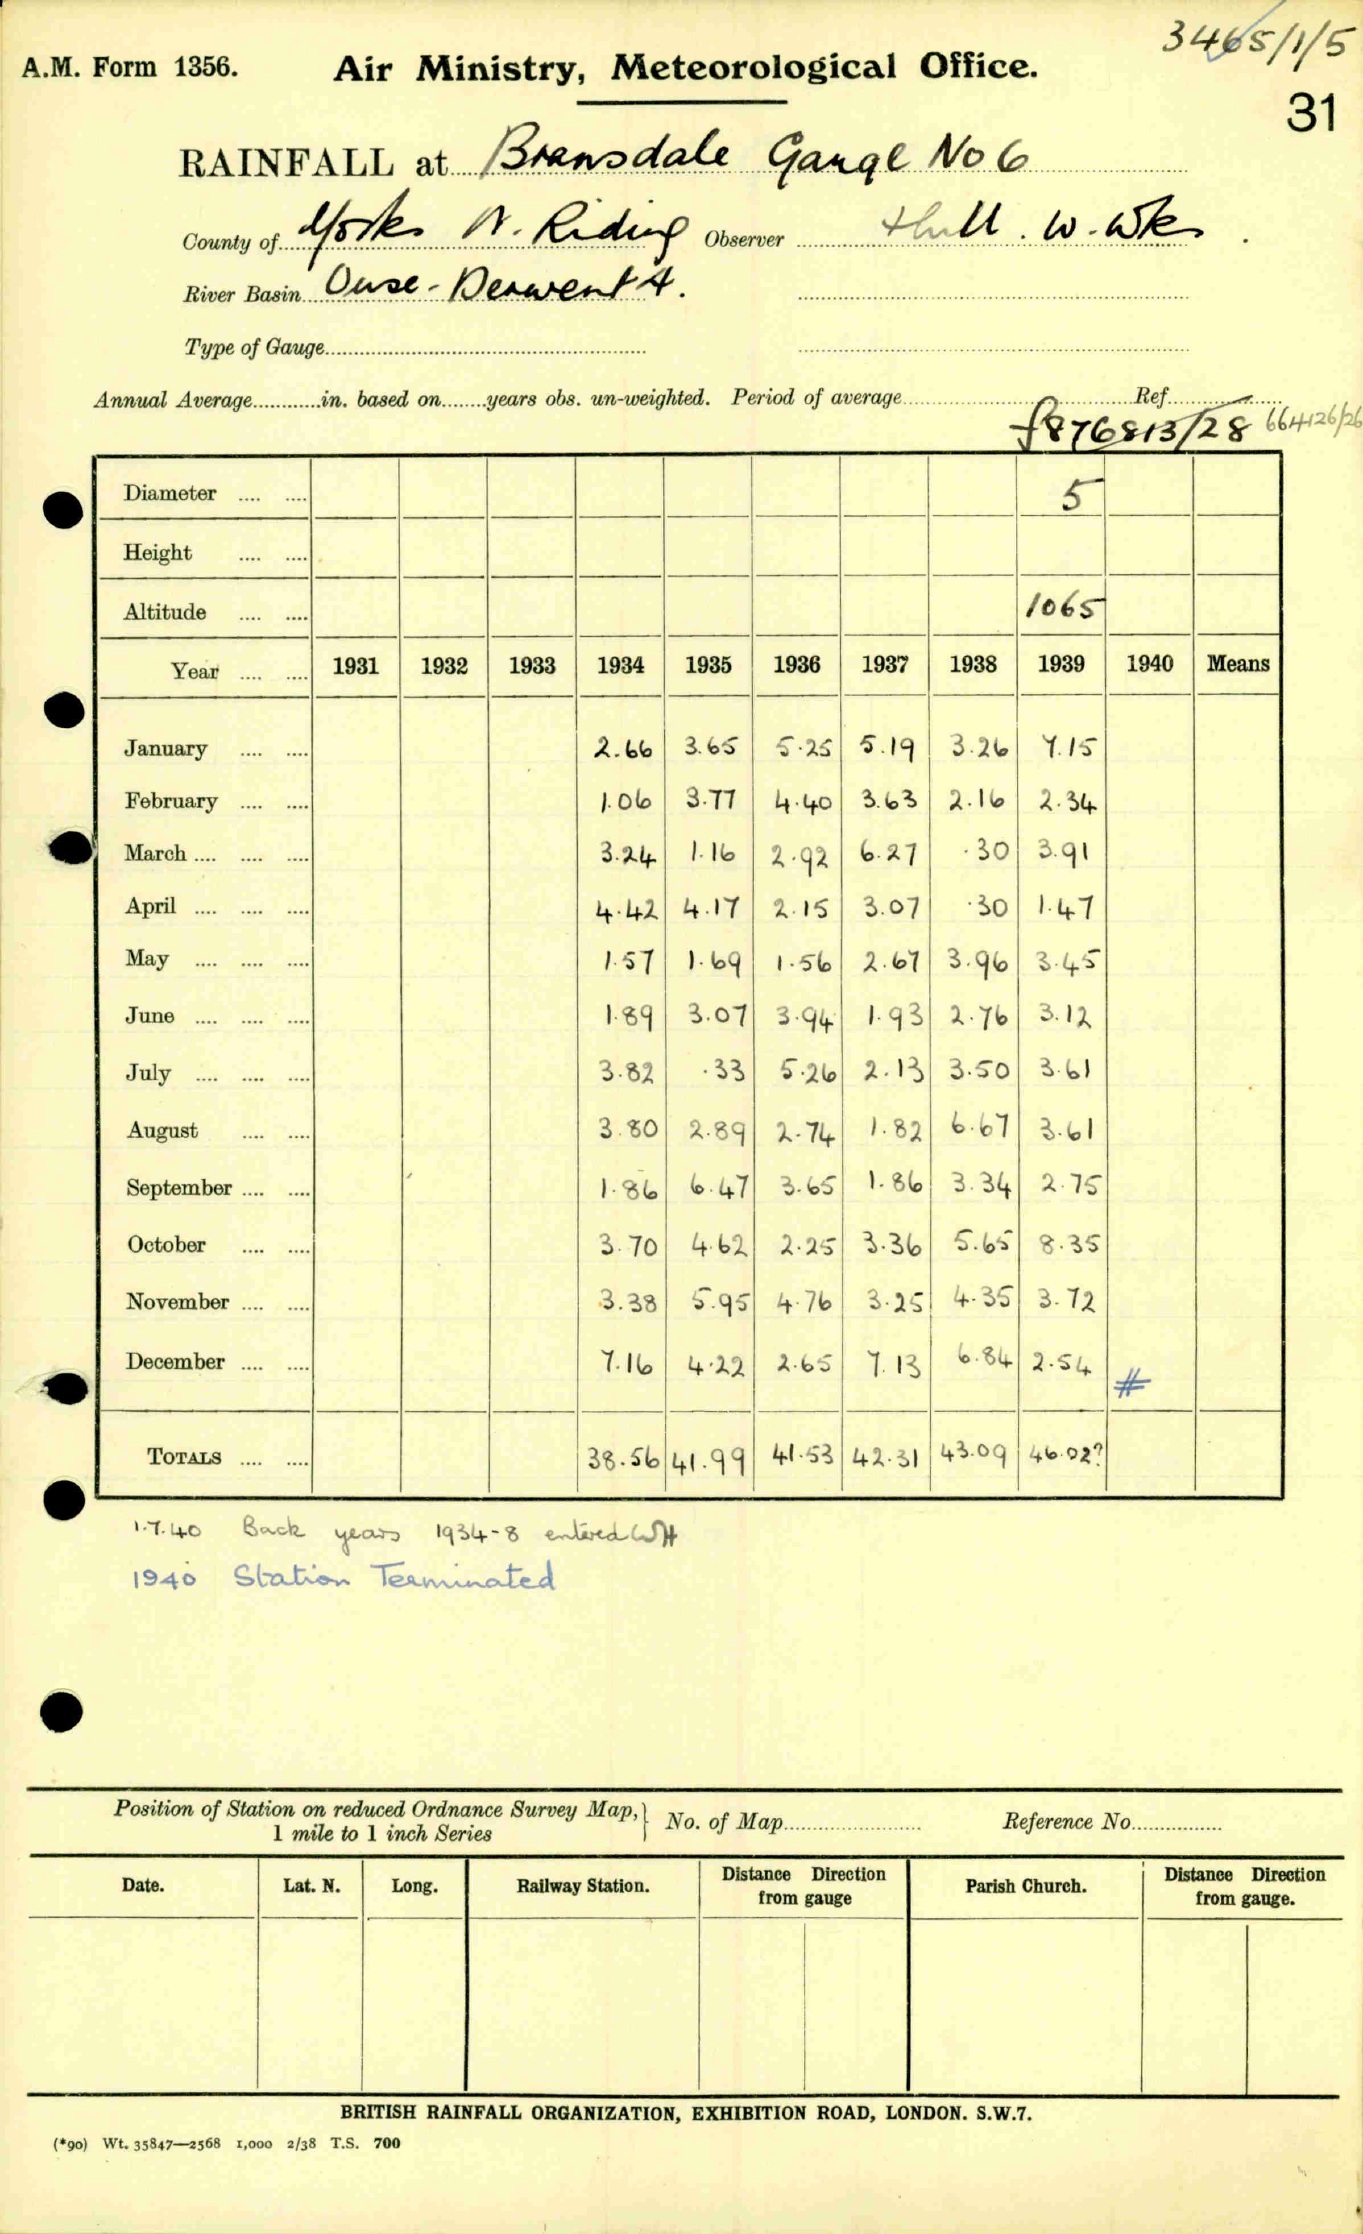 3465/1/5
A.M. Form 1356. Air Ministry, Meteorological Office.
31
RAINFALL at Bransdale Gauge No 6
County of Yorks N. Riding Observer Hull. W. Wks.
River Basin Ouse - Derwent 4.
Type of Gauge
Annual Average............in. based on.......years obs. un-weighted. Period of average Ref
876813/28 664126/26
Diameter .... .... 5
Height .... ....
Altitude .... .... 1065
Year .... .... 1931 1932 1933 1934 1935 1936 1937 1938 1939 1940 Means
January .... .... 2.66 3.65 5.25 5.19 3.26 7.15
February .... .... 1.06 3.77 4.40 3.63 2.16 2.34
March .... .... .... 3.24 1.16 2.92 6.27 .30 3.91
April .... .... .... 4.42 4.17 2.15 3.07 .30 1.47
May .... .... .... 1.57 1.69 1.56 2.67 3.96 3.45
June .... .... .... 1.89 3.07 3.94 1.93 2.76 3.12
July .... .... .... 3.82 .33 5.26 2.13 3.50 3.61
August .... .... 3.80 2.89 2.74 1.82 6.67 3.61
September .... .... 1.86 6.47 3.65 1.86 3.34 2.75
October .... .... 3.70 4.62 2.25 3.36 5.65 8.35
November .... .... 3.38 5.95 4.76 3.25 4.35 3.72
December .... .... 7.16 4.22 2.65 7.13 6.84 2.54 #
TOTALS .... .... 38.56 41.99 41.53 42.31 43.09 46.02?
1.7.40 Back years 1934-8 entered WH
1940 Station Terminated
Position of Station on reduced Ordnance Survey Map, 1 mile to 1 inch Series } No. of Map Reference No
Date. Lat. N. Long. Railway Station. Distance Direction from gauge Parish Church. Distance Direction from gauge.
BRITISH RAINFALL ORGANIZATION, EXHIBITION ROAD, LONDON. S.W.7.
(*90) Wt. 35847—2568 1,000 2/38 T.S. 700